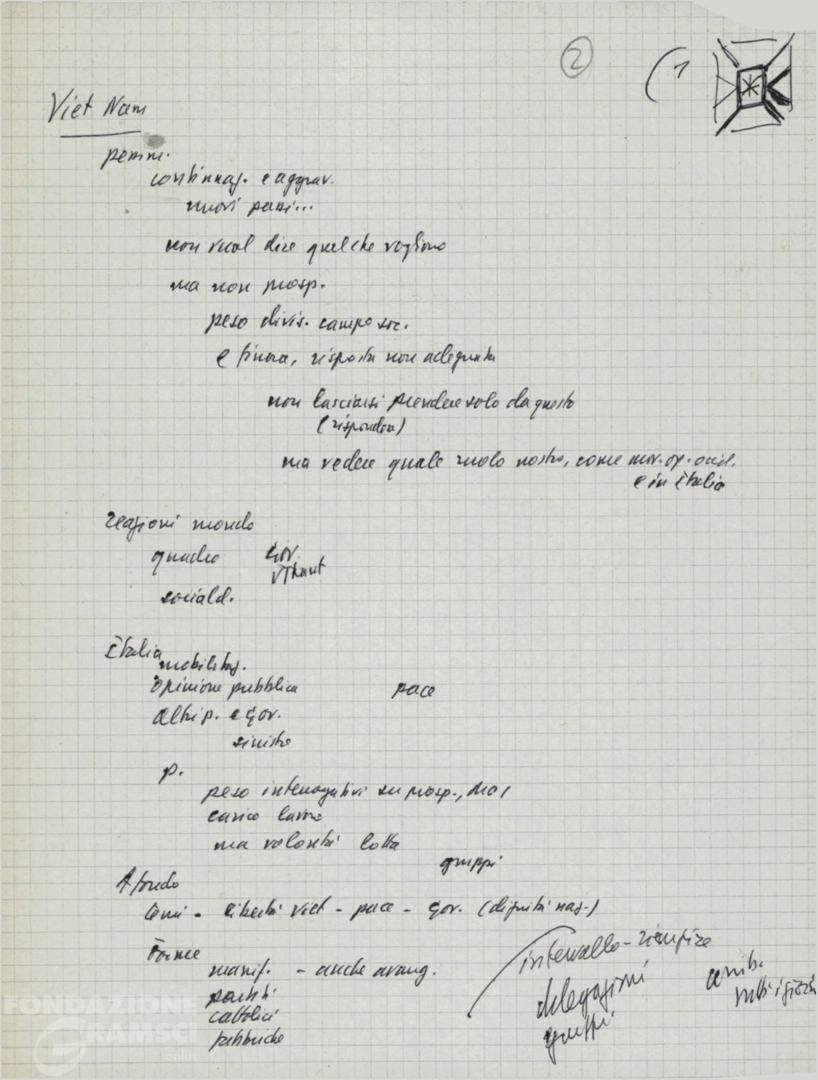 2
(1
Viet Nam
pessim.
continuaz. e aggrav.
nuovi passi...
non vuol dire quel che vogliono
ma non prosp.
peso divis. campo soc.
e finora, risposta non adeguata
non lasciarsi prendere solo da questo
(risponder)
ma vedere quale ruolo nostro, come mov. op. occid.
e in Italia
reazioni mondo
quadro gov.
U Thant
sociald.
Italia
mobilitaz.
opinione pubblica pace
altri p. e gov.
sinistre
p.
peso interrogativi su prosp.,
carico lavoro
ma volontà lotta
gruppi
A fondo
temi - libertà Viet - pace - gov. (dignità naz.)
Forme
manif. - anche avang.
partiti
cattolici
fabbriche
intervallo - riempire
delegazioni
gruppi
comb.
tutti i giorni
FONDAZIONE
GRAMSCI